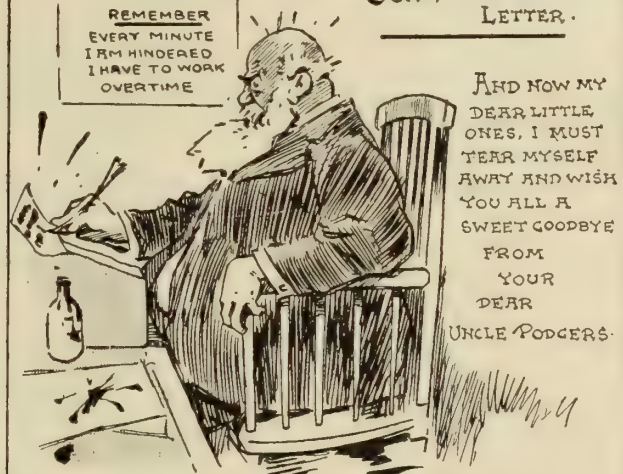 REMEMBER
EVERY MINUTE
I AM HINDERED
I HAVE TO WORK
OVERTIME
LETTER.
AND NOW MY
DEAR LITTLE
ONES, I MUST
TEAR MYSELF
AWAY AND WISH
YOU ALL A
SWEET GOODBYE
FROM
YOUR
DEAR
UNCLE PODGERS.